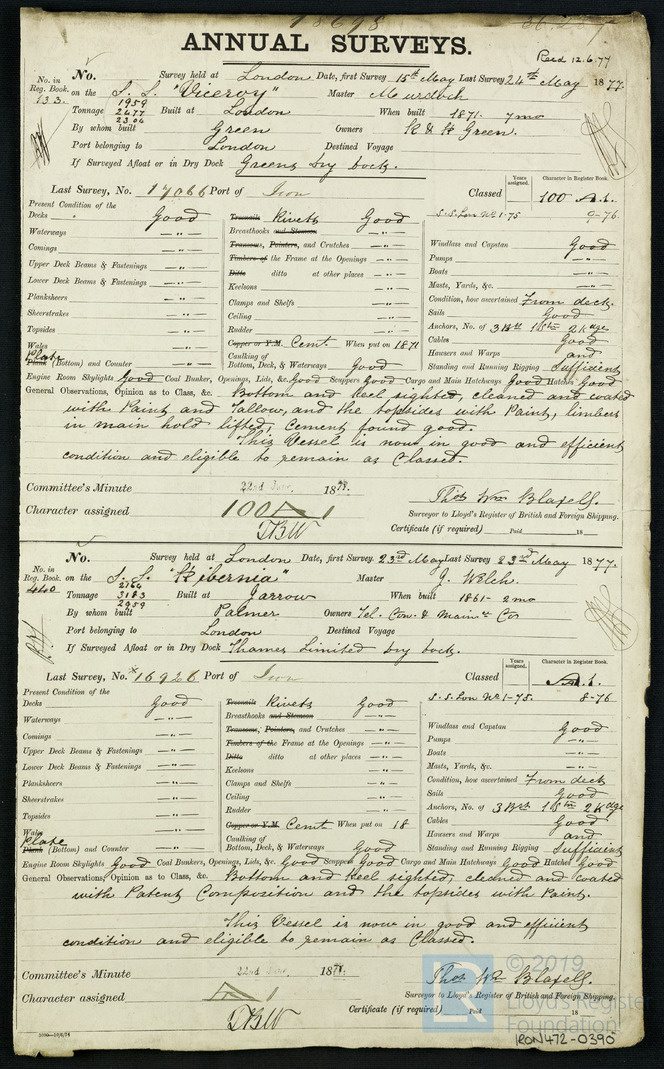 18698
ANNUAL SURVEYS.
Recd 12.6.77
No. in Reg. Book. 133.
No. Survey held at London Date, first Survey 15th May Last Survey 24th May 1877.
on the S. S. "Viceroy" Master Murdoch
Tonnage 1959 2477 2304 Built at London When built 1871. 7mo
By whom built Green Owners R & H Green.
Port belonging to London Destined Voyage
If Surveyed Afloat or in Dry Dock Greens dry dock.
Last Survey, No. 17066 Port of Iron
Classed Years assigned. Character in Register Book. 100 A.1.
S.S. Lon No 1-75 9-76
Present Condition of the
Decks Good
Waterways -"-
Comings -"-
Upper Deck Beams & Fastenings -"-
Lower Deck Beams & Fastenings -"-
Planksheers -"-
Sheerstrakes -"-
Topsides -"-
Wales -"-
Plate Plank (Bottom) and Counter -"-
Treenails Rivets Good
Breasthooks and Stemson -"-
Transoms, Pointers, and Crutches -"-
Timbers of the Frame at the Openings -"-
Ditto ditto at other places -"-
Keelsons -"-
Clamps and Shelfs -"-
Ceiling -"-
Rudder -"-
Copper or Y.M. Cemt When put on 1871
Caulking of Bottom, Deck, & Waterways Good
Windlass and Capstan Good
Pumps -"-
Boats -"-
Masts, Yards, &c. -"-
Condition, how ascertained From deck
Sails Good
Anchors, No. of 3 Br 1 Stm 2 Kdge
Cables Good
Hawsers and Warps and
Standing and Running Rigging Sufficient
Engine Room Skylights Good Coal Bunker, Openings, Lids, &c. Good Scuppers Good Cargo and Main Hatchways Good Hatches Good
General Observations, Opinion as to Class, &c. Bottom and keel sighted, cleaned and coated
with Paint and Tallow, and the topsides with Paint, limbers
in main hold lifted, Cement found good.
This Vessel is now in good and efficient
condition and eligible to remain as Classed.
Committee's Minute 22nd June 1877.
Character assigned 100A1
TBW
Thos Wm Blaxell.
Surveyor to Lloyd's Register of British and Foreign Shipping.
Certificate (if required) Paid 18
No. in Reg. Book. 440
No. Survey held at London Date, first Survey 23rd May Last Survey 23rd May 1877.
on the S. S. "Hibernia" Master J. Welch.
Tonnage 2166 3183 2959 Built at Jarrow When built 1861- 2mo
By whom built Palmer Owners Tel. Con. & Maince Co
Port belonging to London Destined Voyage
If Surveyed Afloat or in Dry Dock Thames Limited dry dock.
Last Survey, No. 16926 Port of Iron
Classed Years assigned. Character in Register Book. A.1.
S.S. Lon No 1-75. 8-76
Present Condition of the
Decks Good
Waterways -"-
Comings -"-
Upper Deck Beams & Fastenings -"-
Lower Deck Beams & Fastenings -"-
Planksheers -"-
Sheerstrakes -"-
Topsides -"-
Wales -"-
Plate Plank (Bottom) and Counter -"-
Treenails Rivets Good
Breasthooks and Stemson -"-
Transoms, Pointers, and Crutches -"-
Timbers of the Frame at the Openings -"-
Ditto ditto at other places -"-
Keelsons -"-
Clamps and Shelfs -"-
Ceiling -"-
Rudder -"-
Copper or Y.M. Cemt When put on 18
Caulking of Bottom, Deck, & Waterways Good
Windlass and Capstan Good
Pumps -"-
Boats -"-
Masts, Yards, &c. -"-
Condition, how ascertained From deck
Sails Good
Anchors, No. of 3 Br 1 Stm 2 Kdge
Cables Good
Hawsers and Warps and
Standing and Running Rigging Sufficient
Engine Room Skylights Good Coal Bunkers, Openings, Lids, &c. Good Scuppers Good Cargo and Main Hatchways Good Hatches Good
General Observations, Opinion as to Class, &c. Bottom and keel sighted, cleaned and coated
with Patent Composition and the topsides with Paint.
This Vessel is now in good and efficient
condition and eligible to remain as Classed.
Committee's Minute 22nd June 1877.
Character assigned A1
TBW
Thos Wm Blaxell.
Surveyor to Lloyd's Register of British and Foreign Shipping.
Certificate (if required) Paid 18
© 2019
Lloyd's Register
Foundation
IRON472-0390